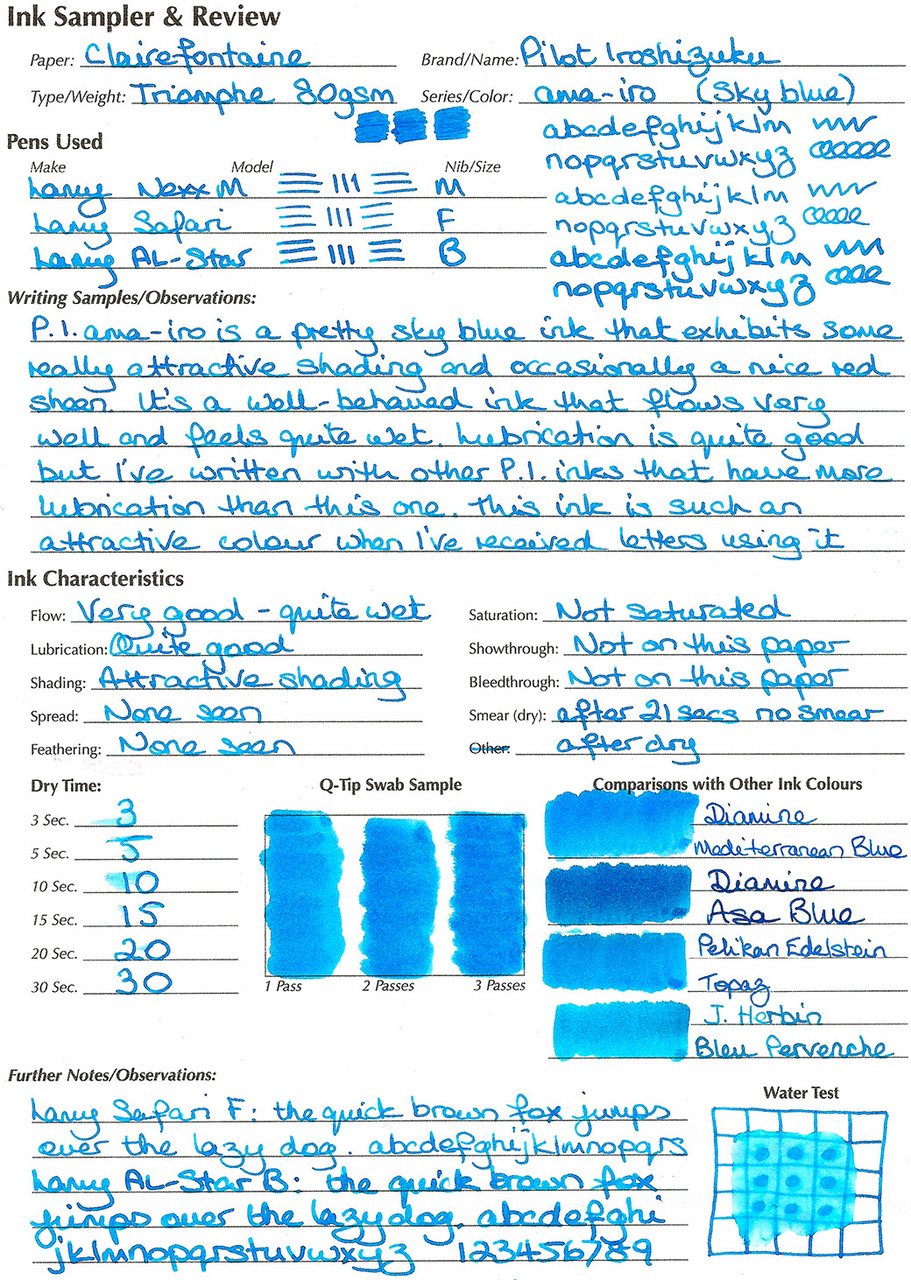 Ink Sampler & Review
Paper: Clairefontaine Brand/Name: Pilot Iroshizuku
Type/Weight: Triomphe 80gsm Series/Color: ama-iro (Sky blue)
abcdefghijklm
Pens Used
nopqrstuvwxyz
Make Model Nib/Size
Lamy Nexx M M
abcdefghijklm
Lamy Safari F
nopqrstuvwxyz
Lamy AL-Star B
abcdefghijklm
nopqrstuvwxyz
Writing Samples/Observations:
P.I. ama-iro is a pretty sky blue ink that exhibits some
really attractive shading and occasionally a nice red
sheen. It's a well-behaved ink that flows very
well and feels quite wet. Lubrication is quite good
but I've written with other P.I. inks that have more
lubrication than this one. This ink is such an
attractive colour when I've received letters using it
Ink Characteristics
Flow: Very good - quite wet Saturation: Not saturated
Lubrication: Quite good Showthrough: Not on this paper
Shading: Attractive shading Bleedthrough: Not on this paper
Spread: None seen Smear (dry): after 21 secs no smear
Feathering: None seen Other: after dry
Dry Time: Q-Tip Swab Sample Comparisons with Other Ink Colours
3 Sec. 3
5 Sec. 5
10 Sec. 10
15 Sec. 15
20 Sec. 20
30 Sec. 30
1 Pass 2 Passes 3 Passes
Diamine
Mediterranean Blue
Diamine
Asa Blue
Pelikan Edelstein
Topaz
J. Herbin
Bleu Pervenche
Further Notes/Observations:
Lamy Safari F: the quick brown fox jumps
over the lazy dog. abcdefghijklmnopqrs
Lamy AL-Star B: the quick brown fox
jumps over the lazy dog. abcdefghi
jklmnopqrstuvwxyz 123456789
Water Test